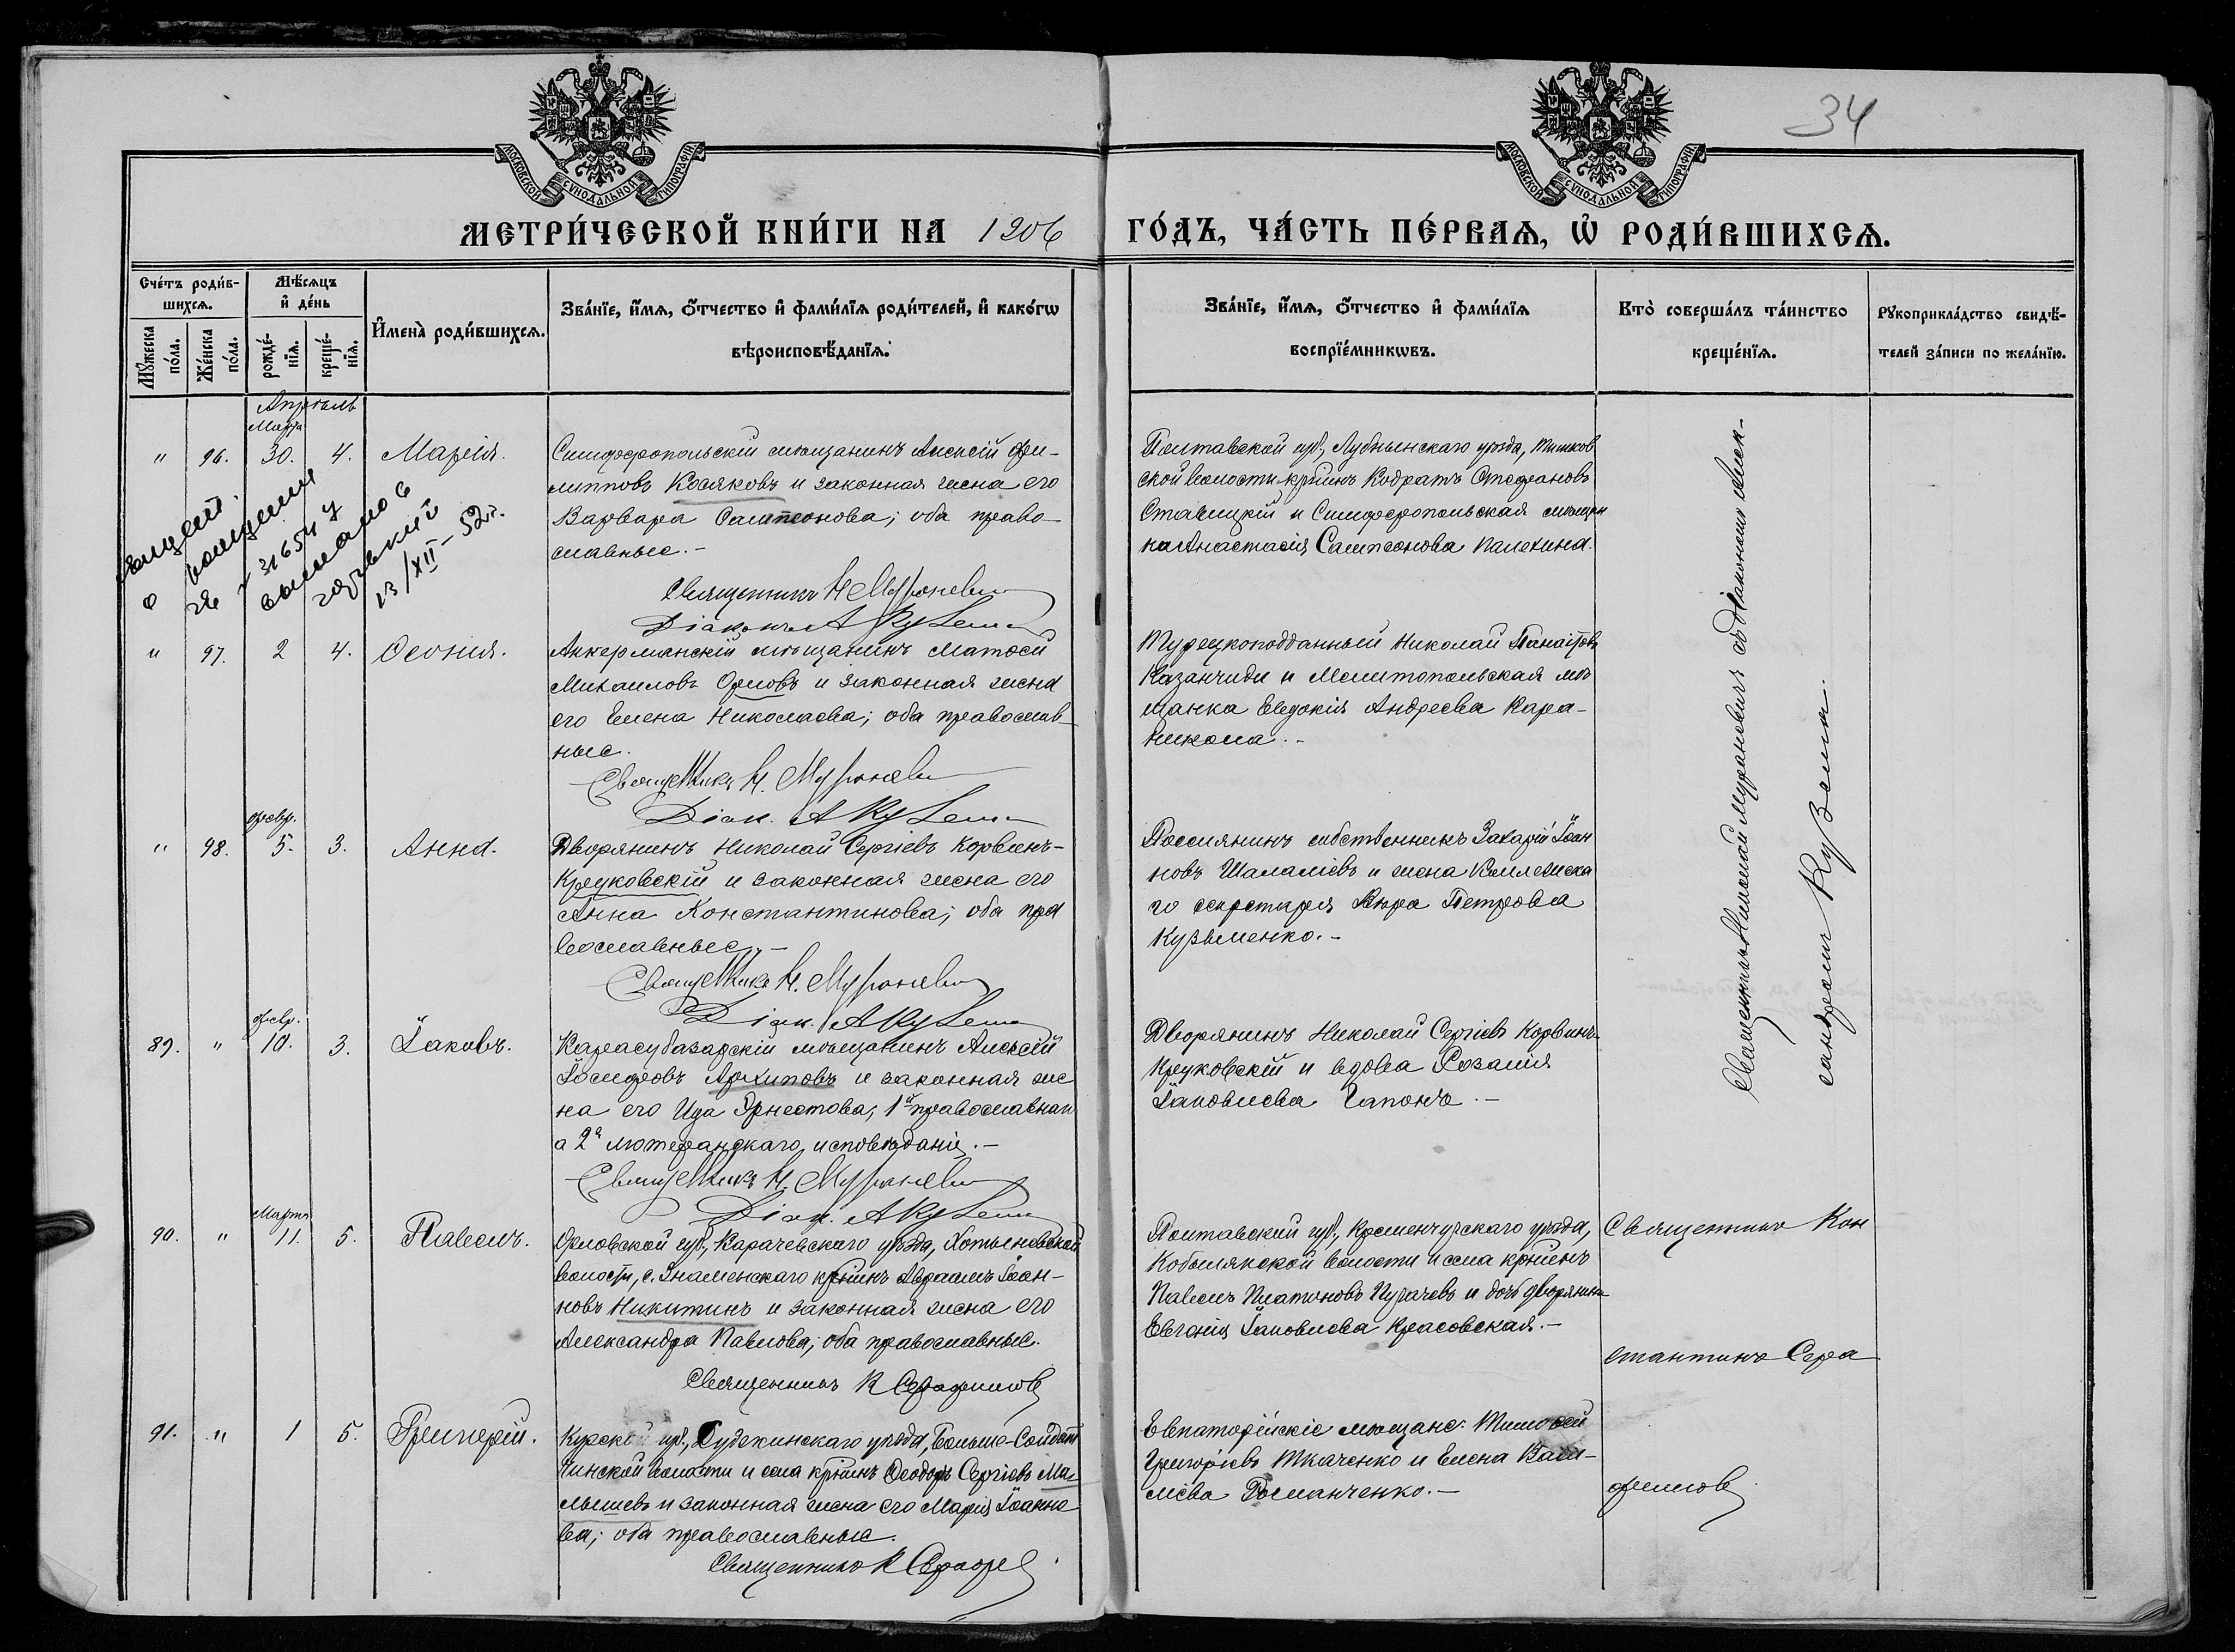 34
МОСКОВСКОЙ СѴНОДАЛЬНОЙ ТИПОГРАФІИ
МОСКОВСКОЙ СѴНОДАЛЬНОЙ ТИПОГРАФІИ
МЕТРИ́ЧЕСКОЙ КНИ́ГИ НА 1906 ГО́ДЪ, ЧА́СТЬ ПЕ́РВАѦ, Ѡ РОДИ́ВШИХСѦ.
Сче́тъ роди́в-
шихсѧ.
Мꙋ́жеска по́ла.
Же́нска по́ла.
Мѣ́сѧцъ
и҆ де́нь
рожде́-
нїѧ.
креще́-
нїѧ.
И҆мена̀ роди́вшихсѧ.
Зва́нїе, и҆́мѧ, ѻ҆́тчество и҆ фами́лїѧ роди́телей, и҆ како́гѡ
вѣроисповѣ́данїѧ.
Зва́нїе, и҆́мѧ, ѻ҆́тчество и҆ фами́лїѧ
воспрїе́мникѡвъ.
Кто̀ соверша́лъ та́инство
креще́нїѧ.
Рꙋкоприкла́дство свидѣ́-
телей за́писи по жела́нїю.
Апрѣль
Марта
" 96. 30. 4. Марія.
Симферопольскій мѣщанинъ Алексій Фи-
липповъ Косяковъ и законная жена его
Варвара Сампсонова; оба право-
славные.-
Священникъ Н Мураневич
Діаконъ А Кузема
Полтавской губ., Лубенскаго уѣзда,
ской волости кр-нинъ Кодратъ Стефановъ
Ставицкій и Симферопольская мѣщан
ка Анастасія Сампсонова Палехина.
о
31654
выслано в
13/XII-52г.
" 97. 2 4. Ѳеонія.
Аккерманскій мѣщанинъ Матѳей
Михаиловъ Орловъ и законная жена
его Елена Николаева; оба православ-
ные.
Священникъ Н. Мураневич
Діак. А Кузема
Турецкоподданный Николай Панаіотовъ
Казанчиди и Мелитопольская мѣ
щанка Евдокія Андреева Кара-
никола.-
февр.
" 98. 5. 3. Анна.
Дворянинъ Николай Сергіевъ Корвинъ-
Круковскій и законная жена его
Анна Константинова; оба пра
вославные.-
Священникъ Н. Мураневич
Діак. А Кузема
Поселянинъ собственникъ Захарій Іоан
новъ Шаламіевъ и жена Коллежска
го секретаря Вѣра Петрова
Кузьменко.-
февр.
89. " 10. 3. Іаковъ.
Карасубазарскій мѣщанинъ Алексій
Іосифовъ Архиповъ и законная же
на его Ида Эрнестова, 1й православнаго
а 2я лютеранскаго исповѣданія.-
Священникъ Н. Мураневич
Діак. А Кузема
Дворянинъ Николай Сергіевъ Корвинъ-
Круковскій и вдова Розалія
Іаковлева Гапонъ.-
Священникъ Николай Мураневичъ съ діакономъ Алек-
сандромъ Кузема.
Марта
90. " 11. 5. Павелъ.
Орловской губ., Карачевскаго уѣзда, Хотынецкой
волости, с. Знаменскаго кр-нинъ Авраамъ Іоан-
новъ Никитинъ и законная жена его
Александра Павлова; оба православные.
Священникъ К Серафимовъ
Полтавской губ., Кременчугскаго уѣзда,
Кобелякской волости и села кр-нинъ
Павелъ Платоновъ Пугачевъ и дочь дворянина
Евгенія Іаковлева Красовская.-
Священникъ Кон
стантинъ Сера
фимовъ
91. " 1 5. Григорій.
Курской губ., Суджинскаго уѣзда, Больше-Солдат
чинской волости и села кр-нинъ Ѳеодоръ Сергіевъ Ма-
лышевъ и законная жена его Марія Іоанно
ва; оба православные.
Священникъ К Серафи
Евпаторійскіе мѣщане: Тимоѳей
Григоріевъ Ткаченко и Елена Васи-
ліева Романченко.-